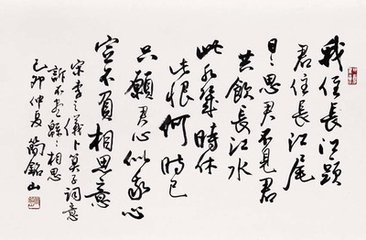 我住長江頭
君住長江尾
日〻思君不見君
共飲長江水
此水幾時休
此恨何時已
只願君心似我心
定不負相思意
宋李之儀卜算子詞意
訴不盡綿〻相思
己卯仲夏 簡銘山